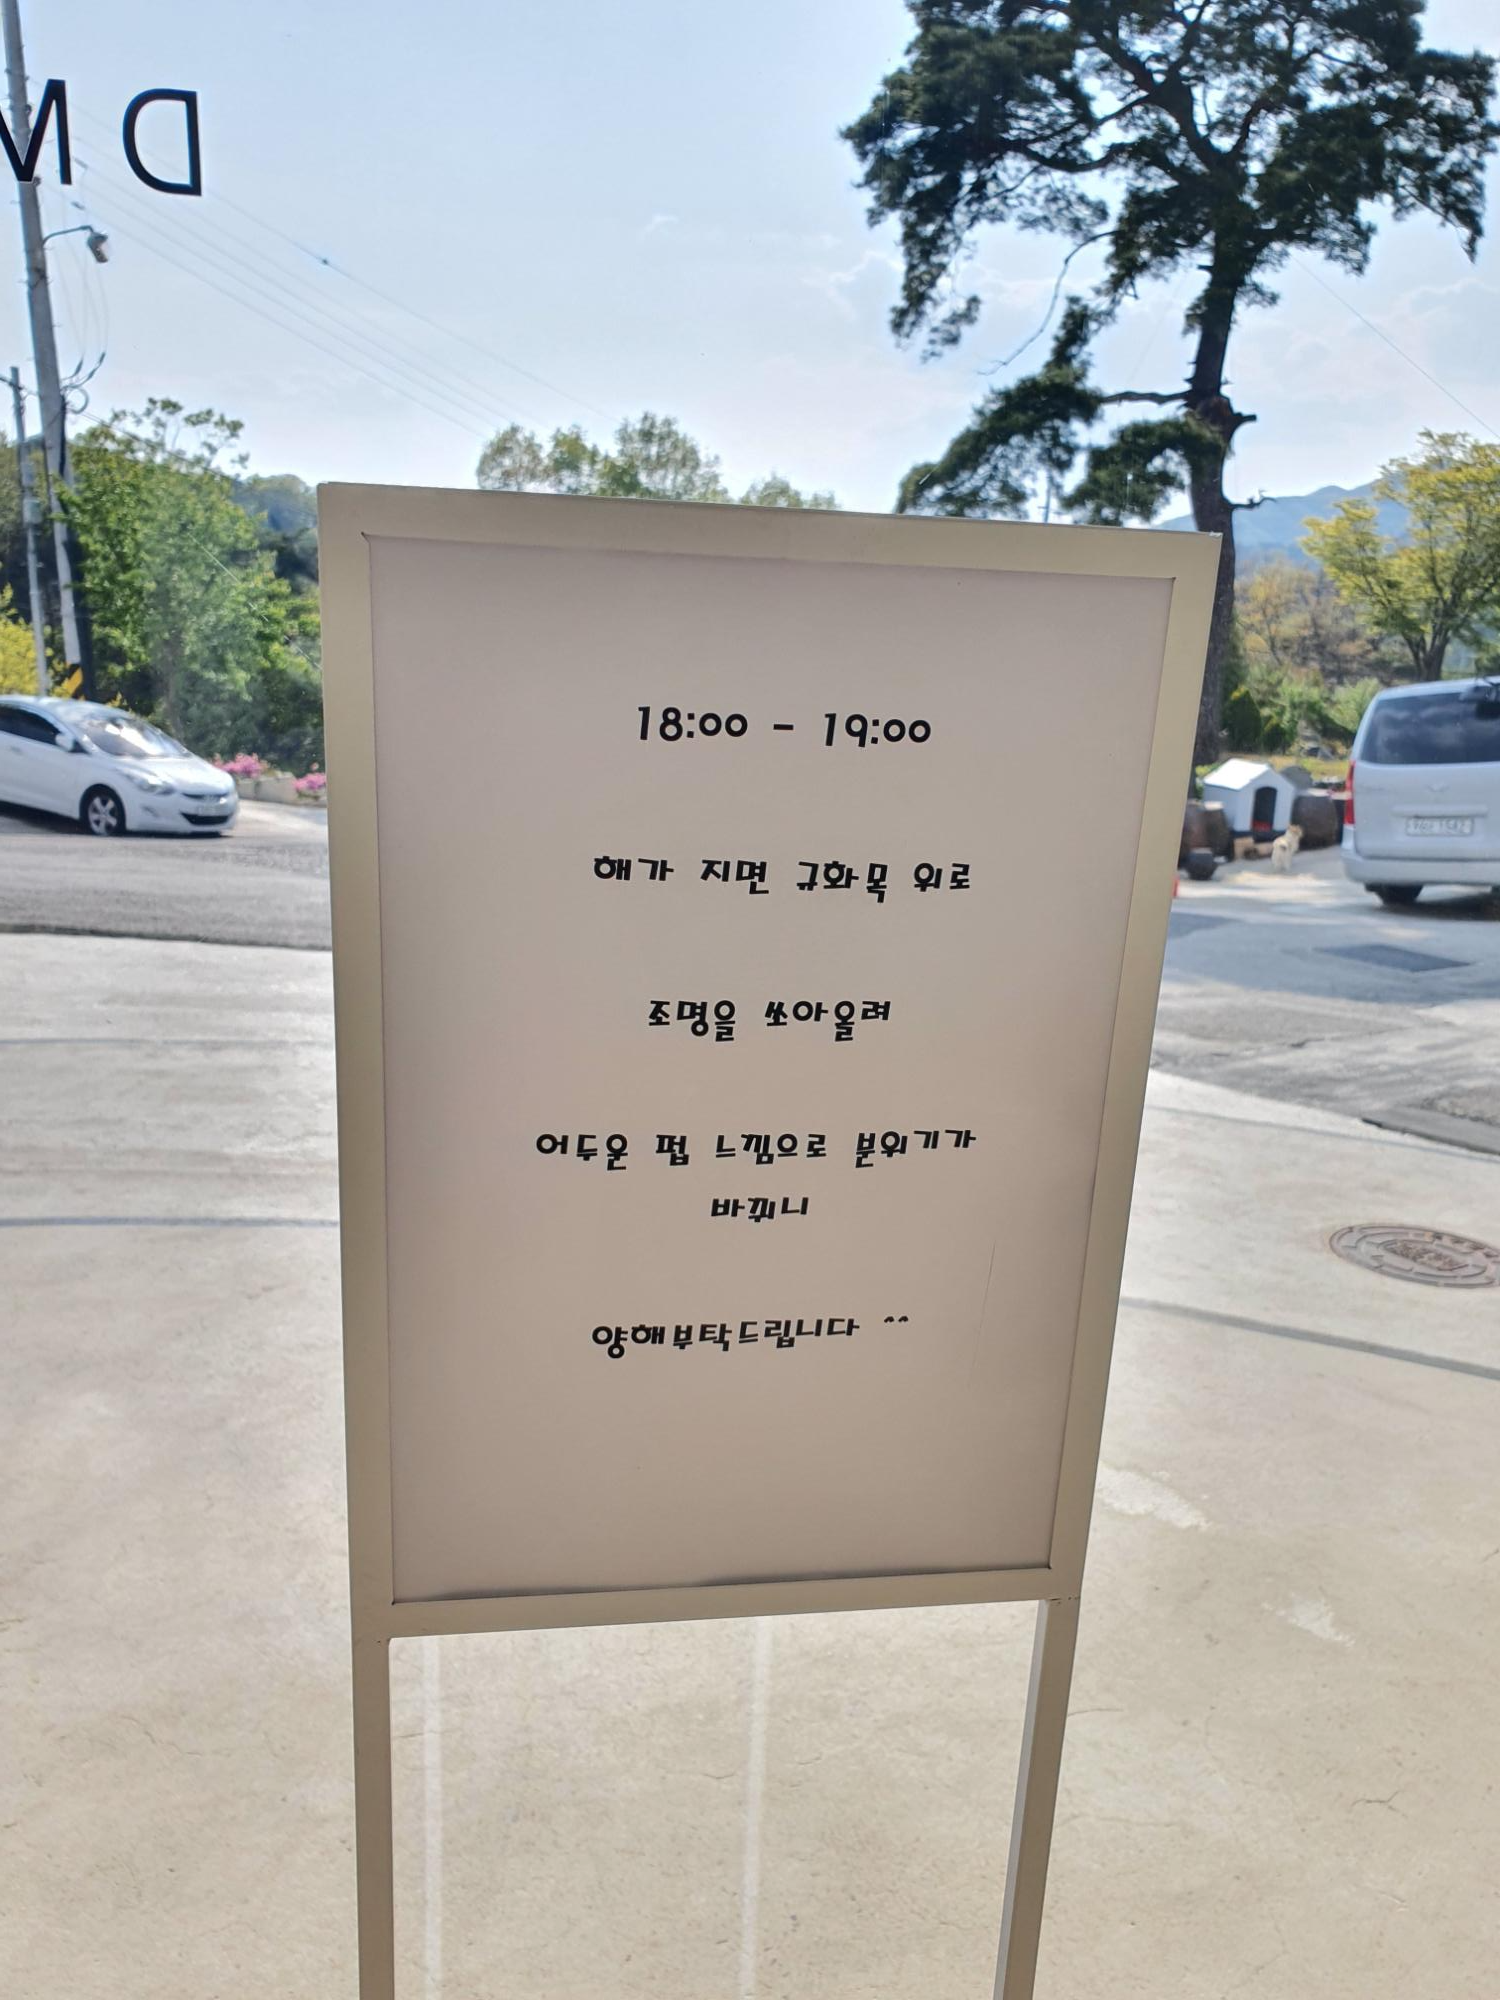 DM
18:00 - 19:00
해가 지면 규화목 위로
조명을 쏘아올려
어두운 펍 느낌으로 분위기가
바뀌니
양해부탁드립니다 ^^